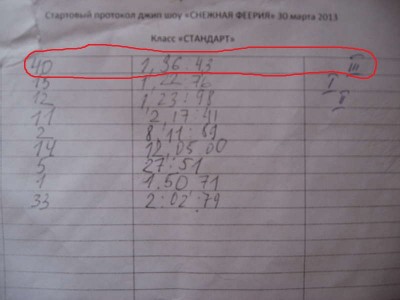 Стартовый протокол джип шоу «СНЕЖНАЯ ФЕЕРИЯ» 30 марта 2013
Класс «СТАНДАРТ»
40 1,36:43 III
15 1,22 76 I
12 1,23:98 II
11 2,17:41
2 8,11:89
14 12,05,00
5 27:51
1 1.50,71
33 2:02,79